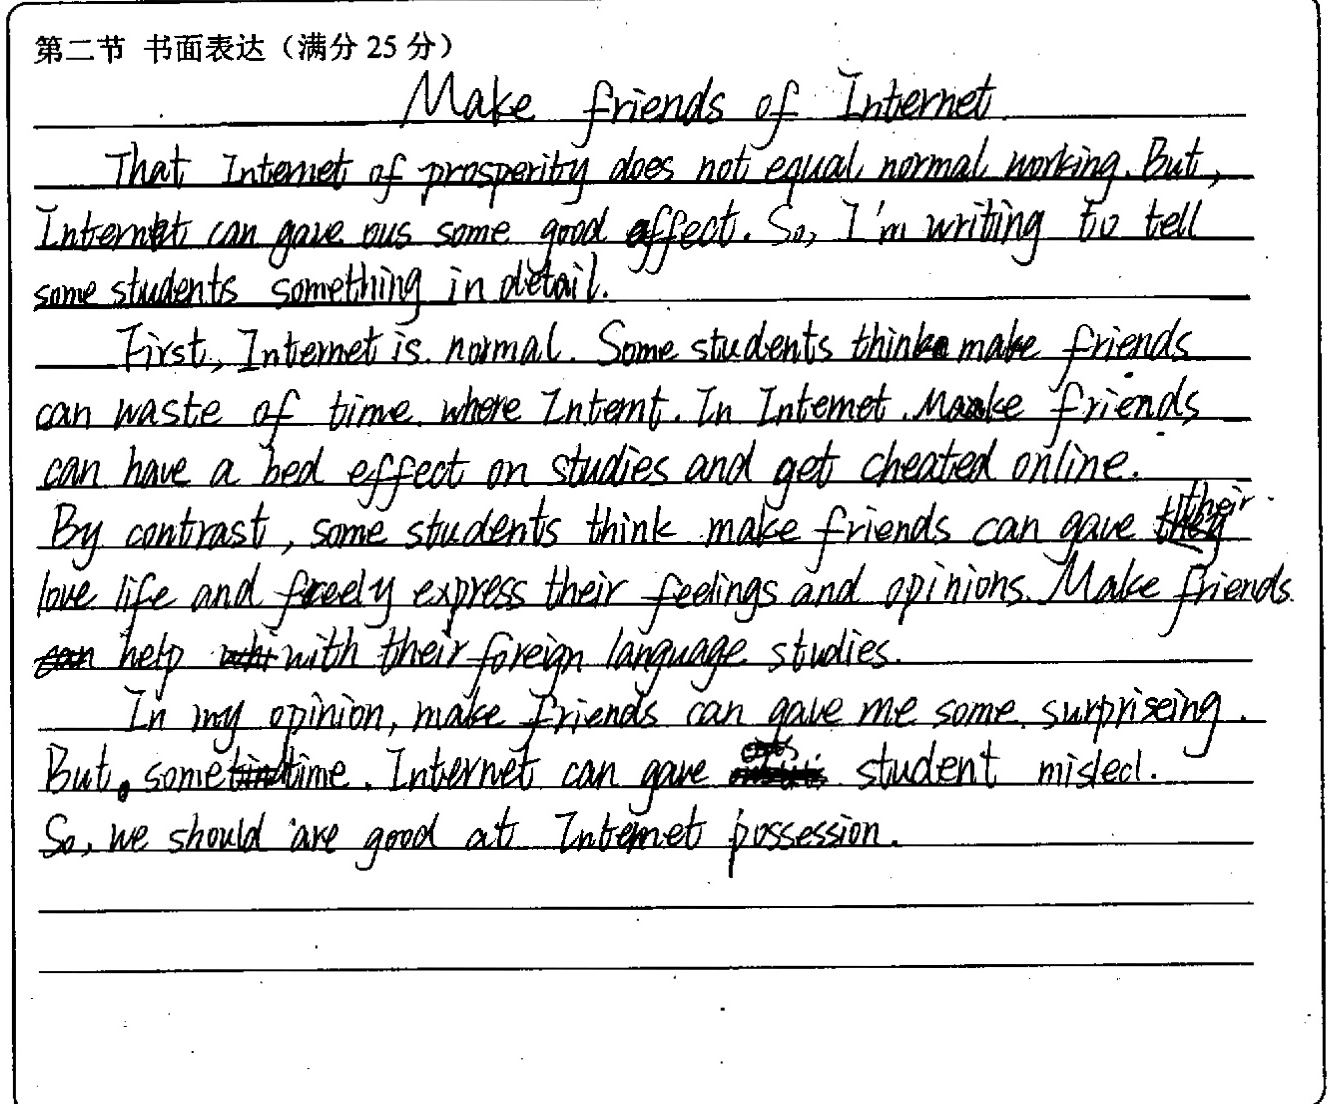 第二节 书面表达（满分 25 分）
Make friends of Internet
That Internet of prosperity does not equal normal working. But,
Internet can gave ous some good effect. So, I'm writing to tell
some students something in detail.
First, Internet is normal. Some students think make friends
can waste of time where Internt. In Internet. Make friends
can have a bed effect on studies and get cheated online.
By contrast, some students think make friends can gave their
love life and freely express their feelings and opinions. Make friends
help with their foreign language studies.
In my opinion, make friends can gave me some surpriseing.
But, sometime. Internet can gave student misled.
So, we should are good at Internet possession.